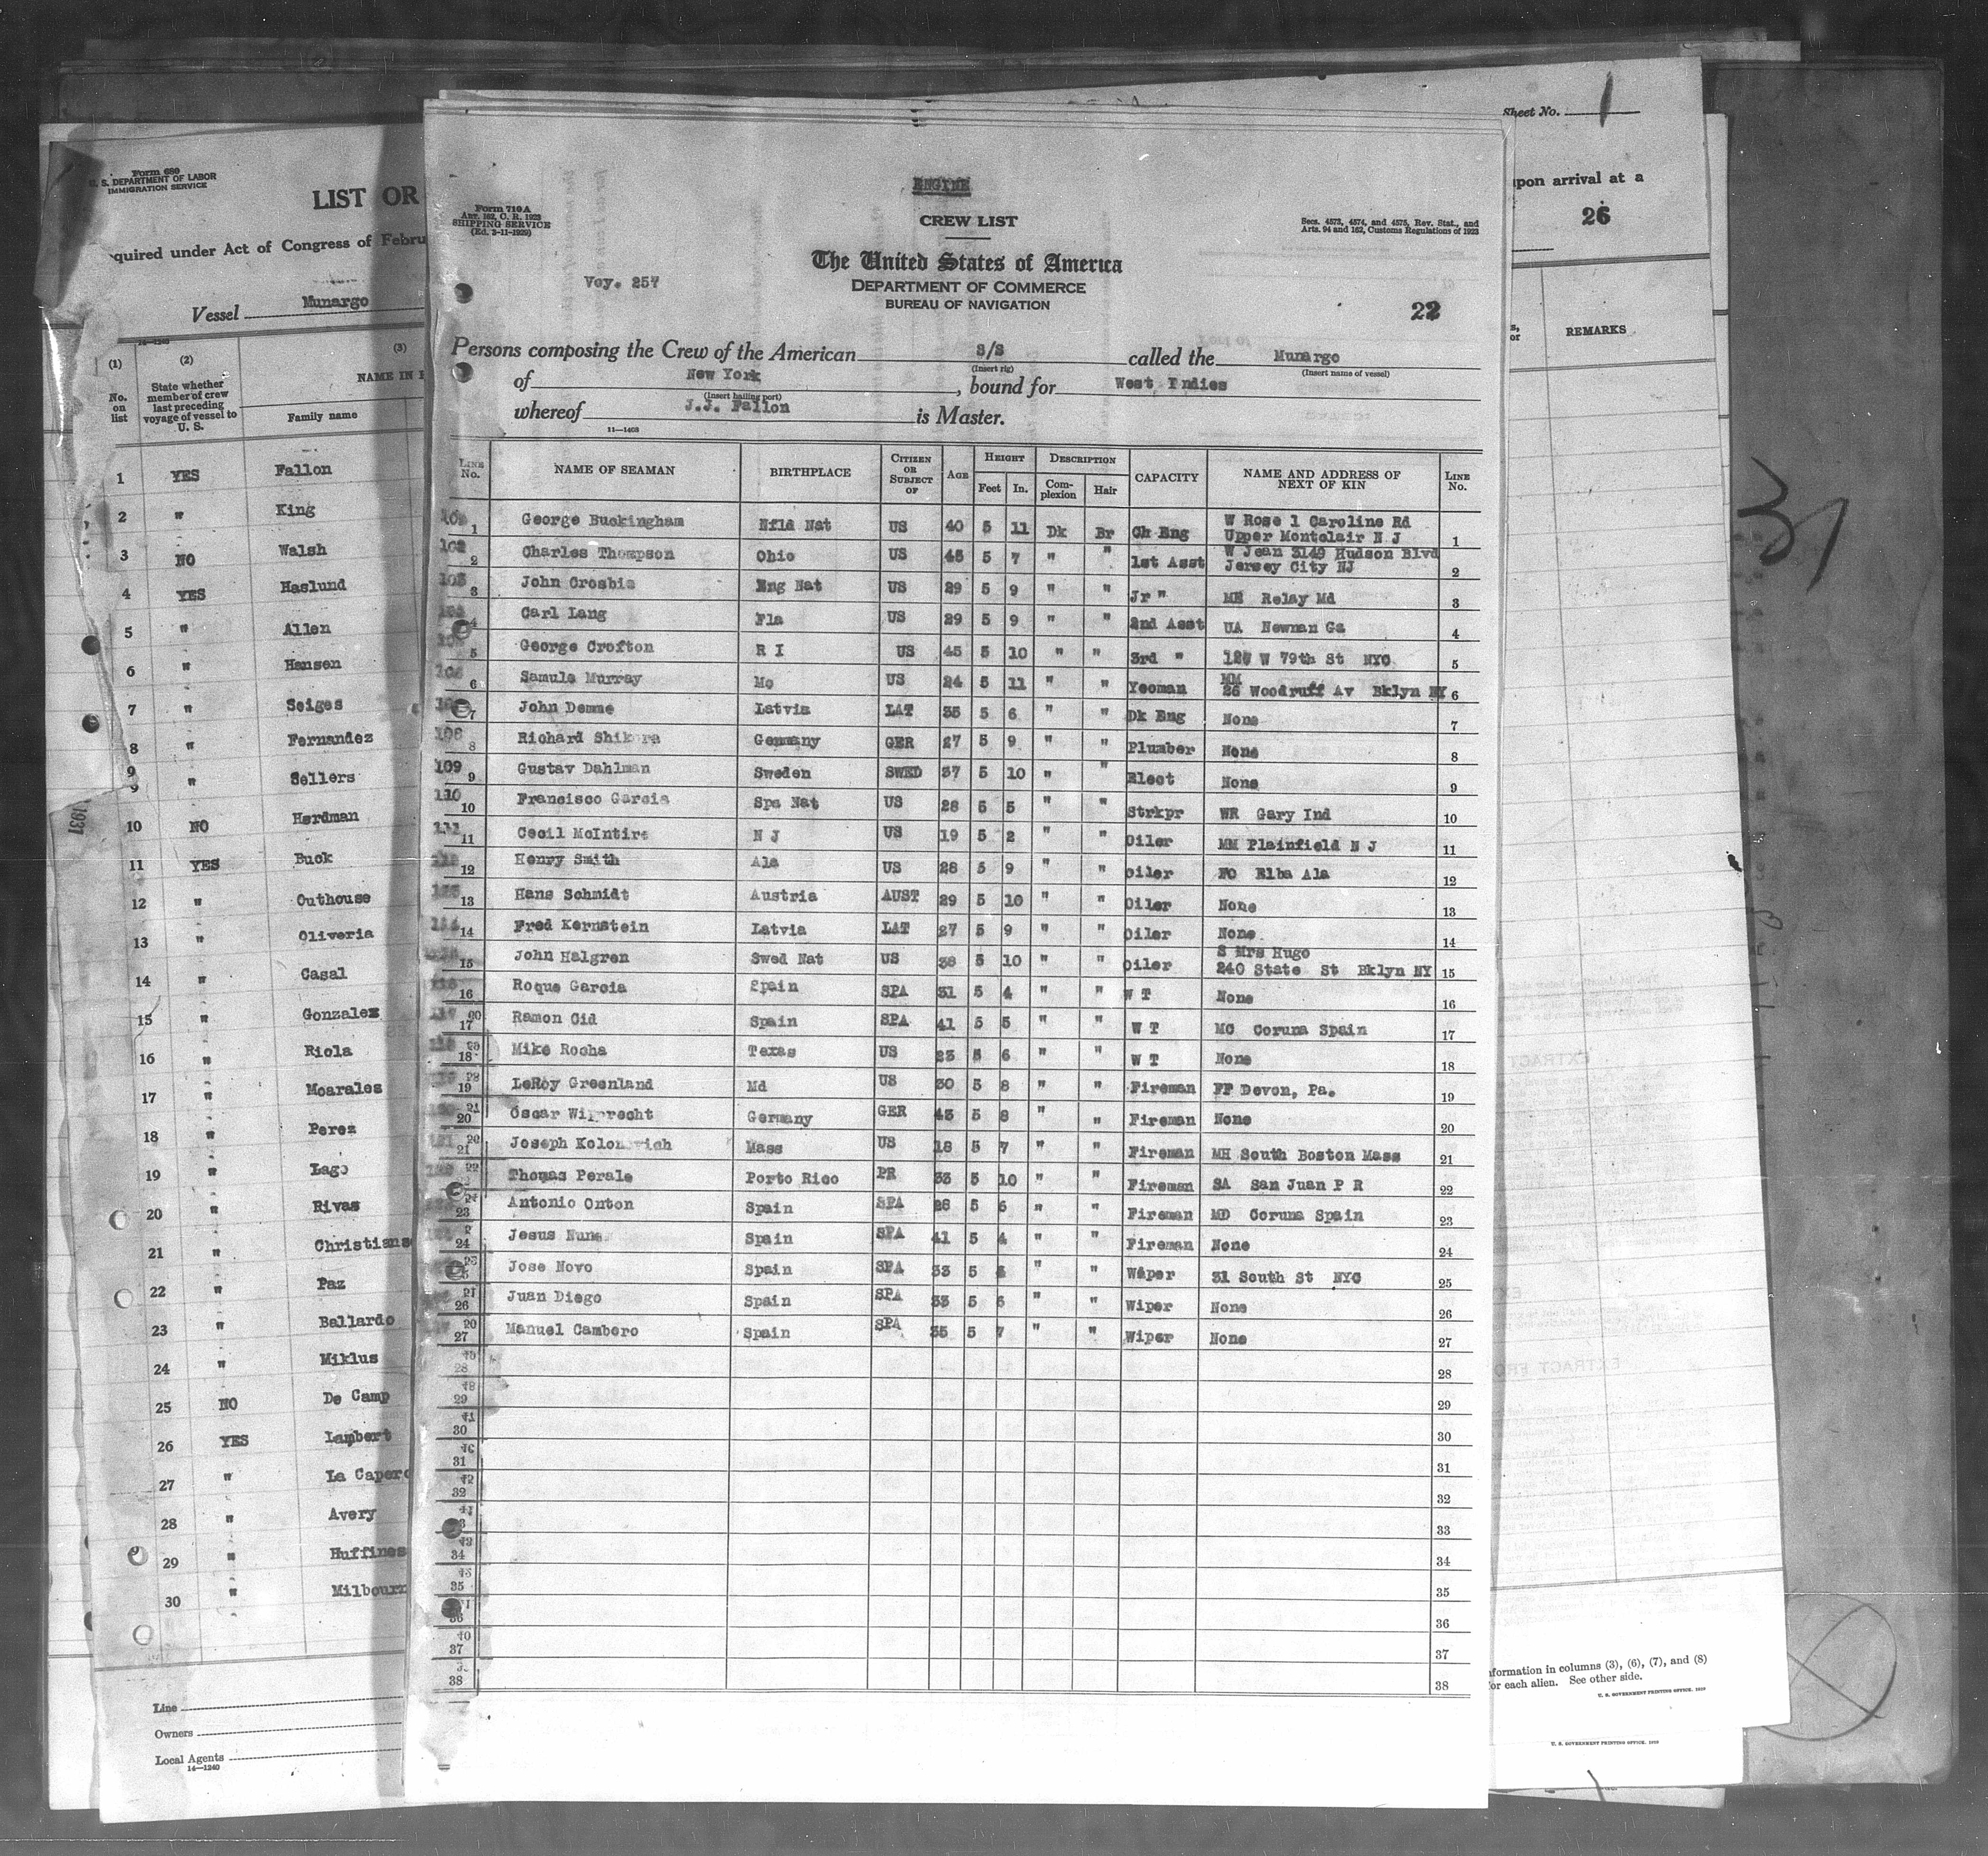 Form 689
U. S. DEPARTMENT OF LABOR
IMMIGRATION SERVICE
LIST OR
quired under Act of Congress of Febru
Vessel Munargo
14-1240
(1) (2) (3)
No. on list
State whether member of crew last preceding voyage of vessel to U. S.
NAME IN
Family name
1 YES Fallon
2 " King
3 NO Walsh
4 YES Haslund
5 " Allen
6 " Hansen
7 " Seiges
8 " Fernandez
9 " Sellers
10 NO Herdman
11 YES Buck
12 " Outhouse
13 " Oliveria
14 " Casal
15 " Gonzalez
16 " Riola
17 " Moarales
18 " Perez
19 " Lago
20 " Rivas
21 " Christians
22 " Paz
23 " Ballardo
24 " Miklus
25 NO De Camp
26 YES Lambert
27 " La Capero
28 " Avery
29 " Huffines
30 " Milbourn
Line
Owners
Local Agents
14-1240
1931
ENGINE
Form 710 A
Art. 162, C. R. 1923
SHIPPING SERVICE
(Ed. 3-11-1929)
CREW LIST
Secs. 4573, 4574, and 4575, Rev. Stat., and
Arts. 94 and 162, Customs Regulations of 1923
The United States of America
Voy. 257
DEPARTMENT OF COMMERCE
BUREAU OF NAVIGATION
22
Persons composing the Crew of the American S/S called the Munargo
(Insert rig) (Insert name of vessel)
of New York, bound for West Indies
(Insert hailing port)
whereof J.J. Fallon is Master.
11-1403
LINE No. NAME OF SEAMAN BIRTHPLACE CITIZEN OR SUBJECT OF AGE HEIGHT Feet In. DESCRIPTION Complexion Hair CAPACITY NAME AND ADDRESS OF NEXT OF KIN LINE No.
1 George Buckingham Nfld Nat US 40 5 11 Dk Br Ch Eng W Rose 1 Caroline Rd Upper Montclair N J 1
2 Charles Thompson Ohio US 45 5 7 " " 1st Asst W Jean 3149 Hudson Blvd Jersey City NJ 2
3 John Crosbie Eng Nat US 29 5 9 " " Jr " ME Relay Md 3
4 Carl Lang Fla US 29 5 9 " " 2nd Asst UA Newnan Ga 4
5 George Crofton R I US 45 5 10 " " 3rd " W 79th St NYC 5
6 Samule Murray Mo US 24 5 11 " " Yeoman MM 26 Woodruff Av Bklyn NY 6
7 John Demme Latvia LAT 35 5 6 " " Dk Eng None 7
8 Richard Shikora Germany GER 27 5 9 " " Plumber None 8
109 9 Gustav Dahlman Sweden SWED 37 5 10 " " Elect None 9
110 10 Francisco Garcia Spa Nat US 28 5 5 " " Strkpr WR Gary Ind 10
111 11 Cecil McIntire N J US 19 5 2 " " Oiler MM Plainfield N J 11
12 Henry Smith Ala US 28 5 9 " " Oiler FO Elba Ala 12
13 Hans Schmidt Austria AUST 29 5 10 " " Oiler None 13
14 Fred Kernstein Latvia LAT 27 5 9 " " Oiler None 14
15 John Halgren Swed Nat US 38 5 10 " " Oiler S Mrs Hugo 240 State St Bklyn NY 15
16 Roque Garcia Spain SPA 31 5 4 " " W T None 16
17 Ramon Cid Spain SPA 41 5 5 " " W T MC Coruna Spain 17
18 Mike Rocha Texas US 23 5 6 " " W T None 18
19 LeRoy Greenland Md US 30 5 8 " " Fireman FF Devon, Pa. 19
20 Oscar Wiprecht Germany GER 43 5 8 " " Fireman None 20
21 Joseph Kolonovich Mass US 18 5 7 " " Fireman MH South Boston Mass 21
Thomas Perale Porto Rico PR 33 5 10 " " Fireman SA San Juan P R 22
23 Antonio Onton Spain SPA 28 5 6 " " Fireman MD Coruna Spain 23
24 Jesus Nune Spain SPA 41 5 4 " " Fireman None 24
Jose Novo Spain SPA 33 5 " " Wiper 31 South St NYC 25
26 Juan Diego Spain SPA 33 5 6 " " Wiper None 26
27 Manuel Cambero Spain SPA 35 5 7 " " Wiper None 27
28 28
29 29
30 30
31 31
32 32
33
34 34
35 35
36 36
37 37
38 38
Sheet No. 1
upon arrival at a
26
REMARKS
31
nformation in columns (3), (6), (7), and (8)
for each alien. See other side.
U. S. GOVERNMENT PRINTING OFFICE. 1929
U. S. GOVERNMENT PRINTING OFFICE. 1929